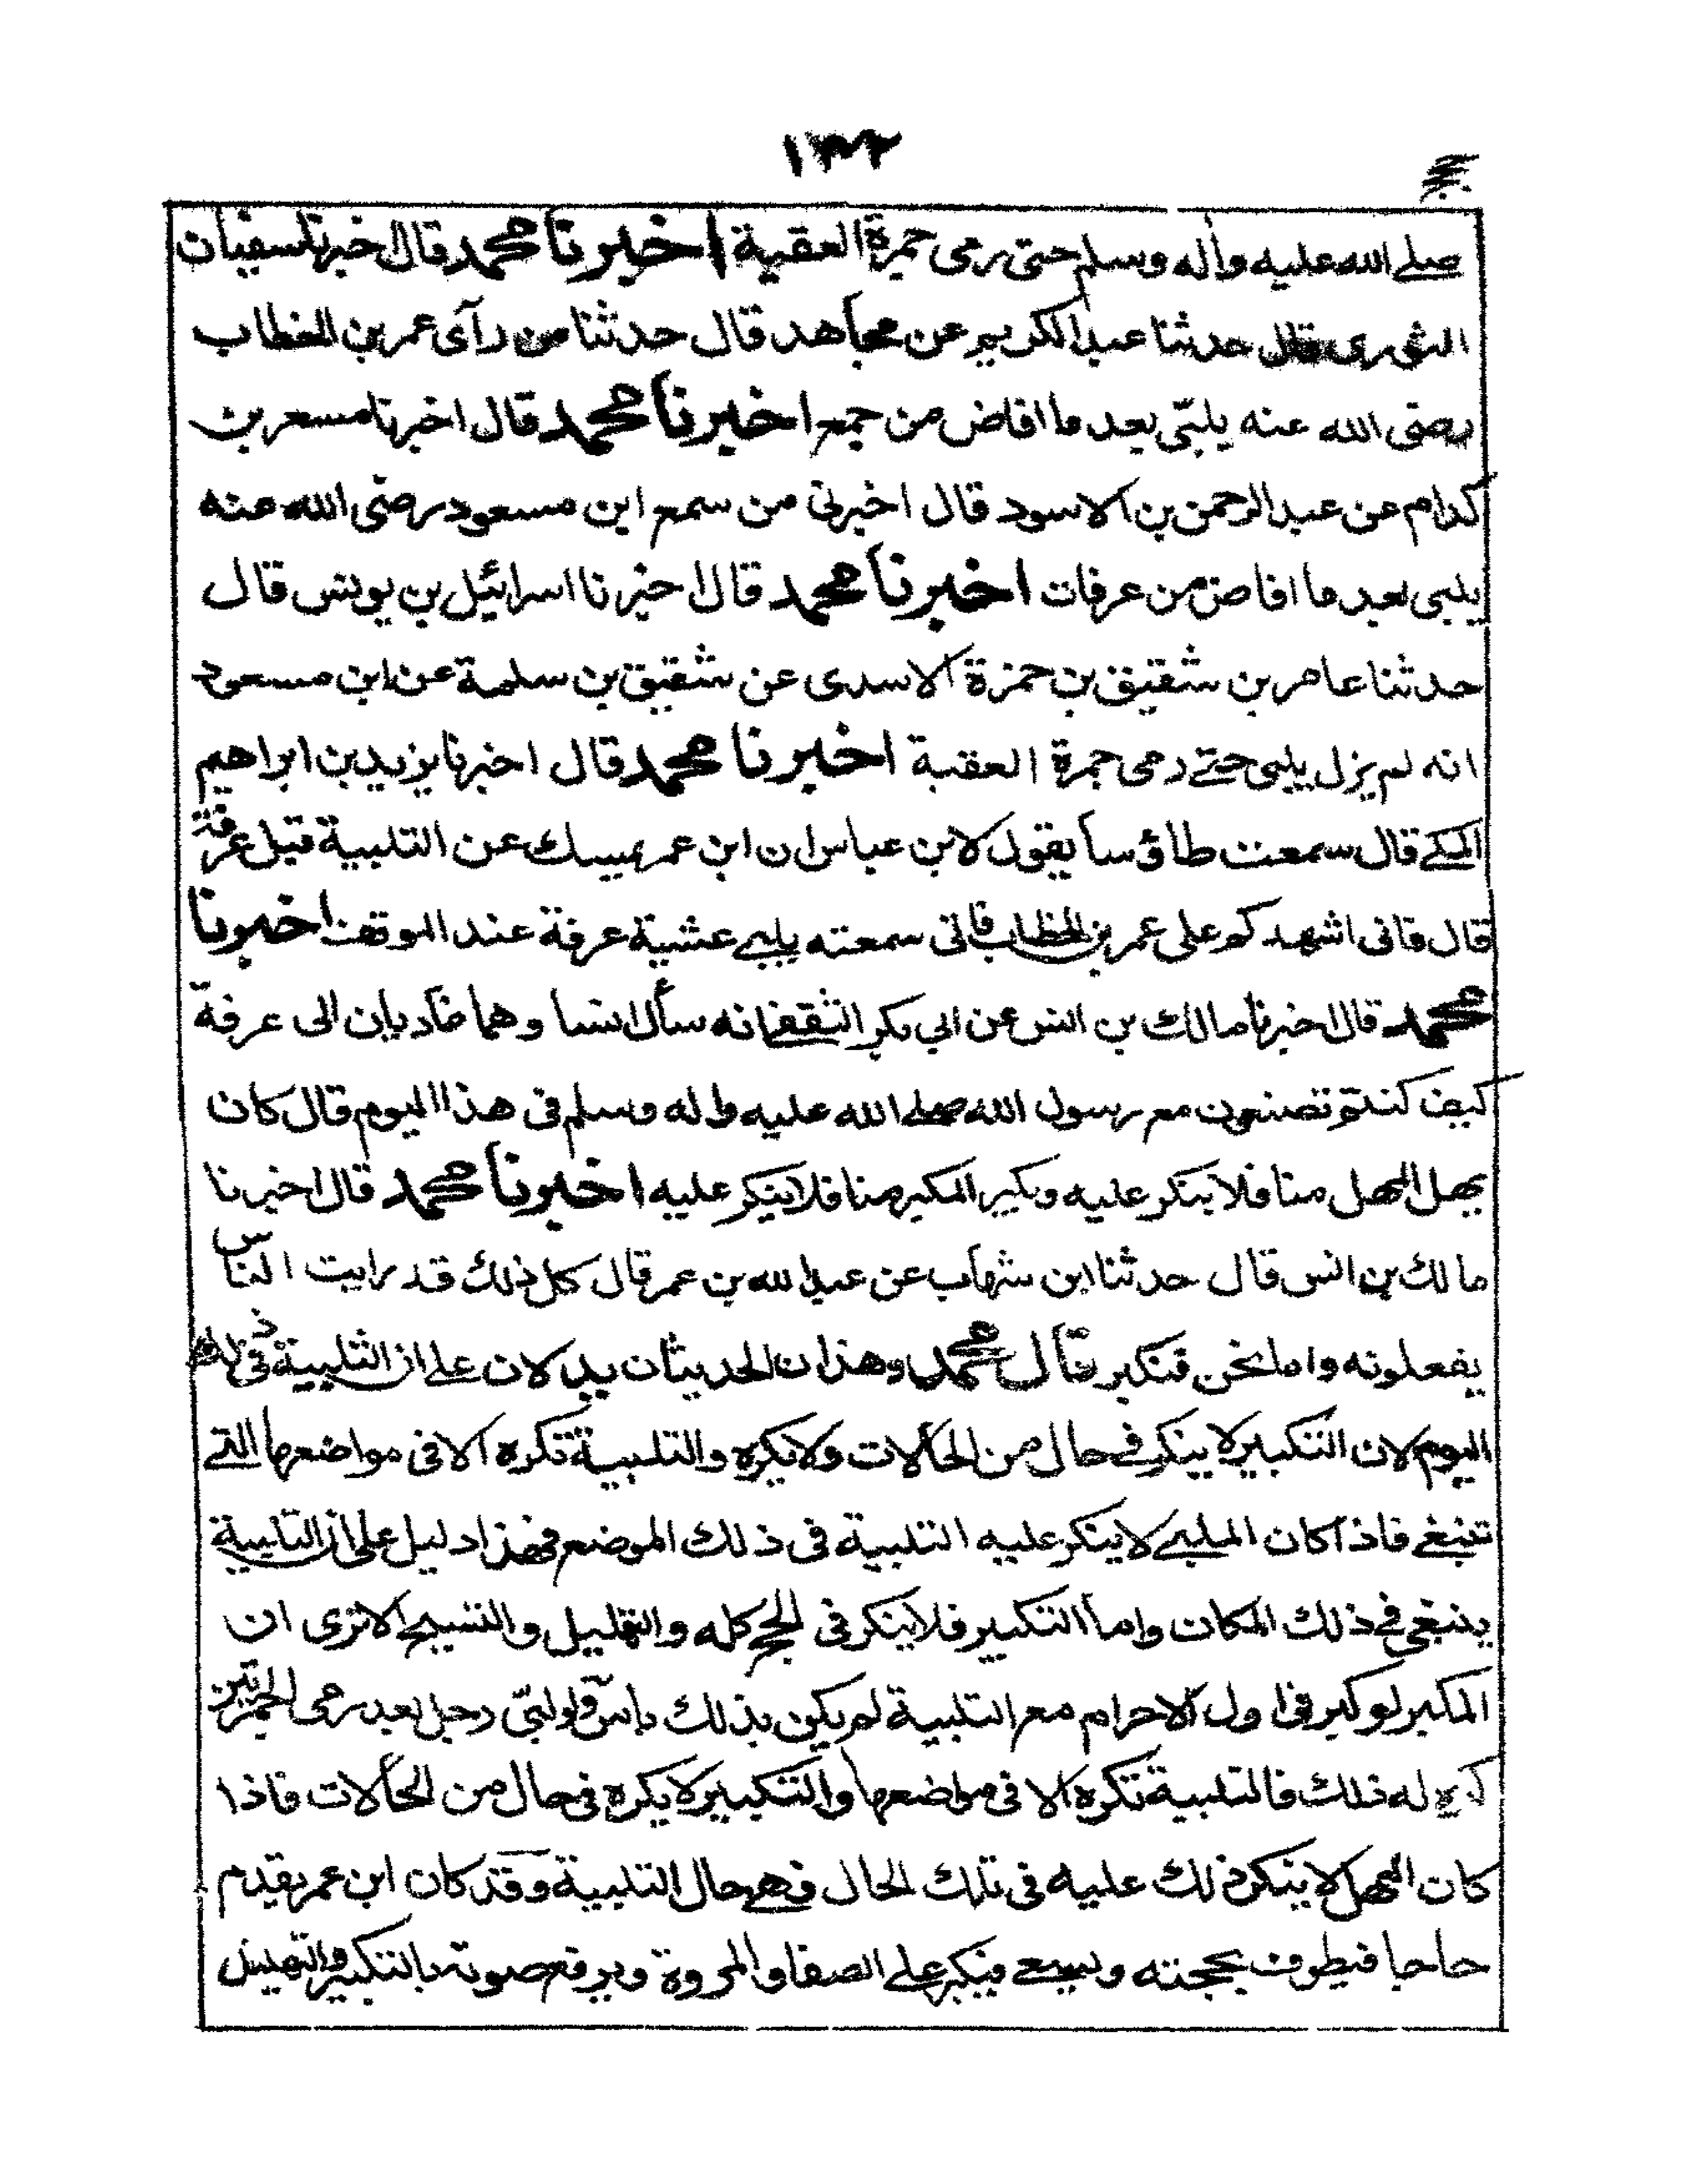 ١٣٢
صلے الله عليه وأله وسلم حتى رمى جمرة العقبة اخبرنا محمد قال اخبرنا سفيان
الثورى قال حدثنا عبد الكريم عن مجاهد قال حدثنا من رآى عمر بن الخطاب
رضى الله عنه يلبّى بعد ما افاض من جمع اخبرنا محمد قال اخبرنا مسعر بن
كدام عن عبد الرحمن بن الاسود قال اخبرنى من سمع ابن مسعود رضى الله عنه
يلبى بعد ما افاض من عرفات اخبرنا محمد قال اخبرنا اسرائيل بن يونس قال
حدثنا عامر بن شقيق بن حمزة الاسدى عن شقيق بن سلمة عن ابن مسعود
انه لم يزل يلبى حتے رمى جمرة العقبة اخبرنا محمد قال اخبرنا يزيد بن ابراهيم
المكے قال سمعت طاؤسا يقول لابن عباس ان ابن عمر يمسك عن التلبية قبل عرفة
قال فانى اشهدكم على عمر بن الخطاب فانى سمعته يلبے عشية عرفة عند الموقف اخبرنا
محمد قال اخبرنا مالك بن انس عن ابي بكر الثقفے انه سأل انسا وهما غاديان الى عرفة
كيف كنتم تصنعون مع رسول الله صلے الله عليه واله وسلم فى هذا اليوم قال كان
يهل المهل منا فلا ينكر عليه ويكبر المكبر منا فلا ينكر عليه اخبرنا محمد قال اخبرنا
مالك بن انس قال حدثنا ابن شهاب عن عبد الله بن عمر قال كل ذلك قد رايت الناس
يفعلونه واما نحن فنكبر قال محمد وهذان الحديثان يدلان على ان التلبية فى ذلك
اليوم لان التكبير لا ينكر فے حال من الحالات ولا يكره والتلبية تكره الا فى مواضعها التے
تنبغے فاذا كان الملبے لا ينكر عليه التلبية فى ذلك الموضع فهذا دليل على ان التلبية
ينبغى فے ذلك المكان واما التكبير فلا ينكر فى الحج كله والتهليل والتسبيح الا ترى ان
المكبر لو كبر فى اول الاحرام مع التلبية لم يكن بذلك باس ولو لبّى رجل بعد رمى الجمرتين
كره له ذلك فالتلبية تكره الا فى مواضعها والتكبير لا يكره فى حال من الحالات فاذا
كان المهل لا ينكر ذلك عليه فى تلك الحال فهے حال التلبية وقد كان ابن عمر يقدم
حاجا فيطوف بحجته ويسعے فيكبر علے الصفا والمروة ويرفع صوته بالتكبير والتهليل